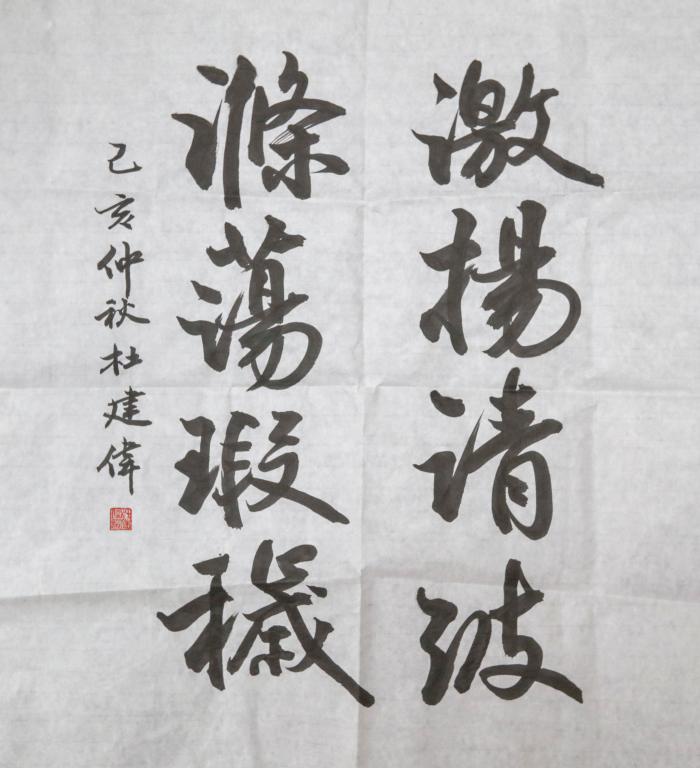 激揚清波
滌蕩瑕穢
己亥仲秋杜建偉